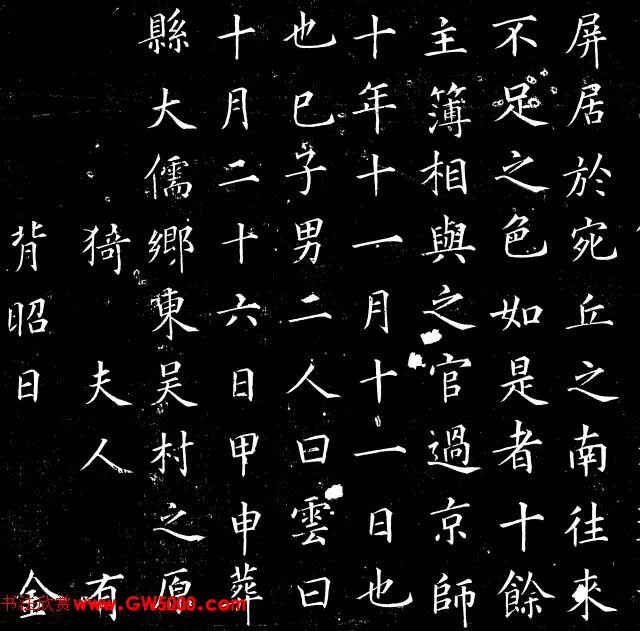 屏居於宛丘之南往來
不足之色如是者十餘
主簿相與之官過京師
十年十一月十一日也
也巳子男二人曰雲曰
十月二十六日甲申葬
縣大儒鄉東吳村之原
猗 夫人 有
背昭日 金
书法欣赏 www.GW5000.com